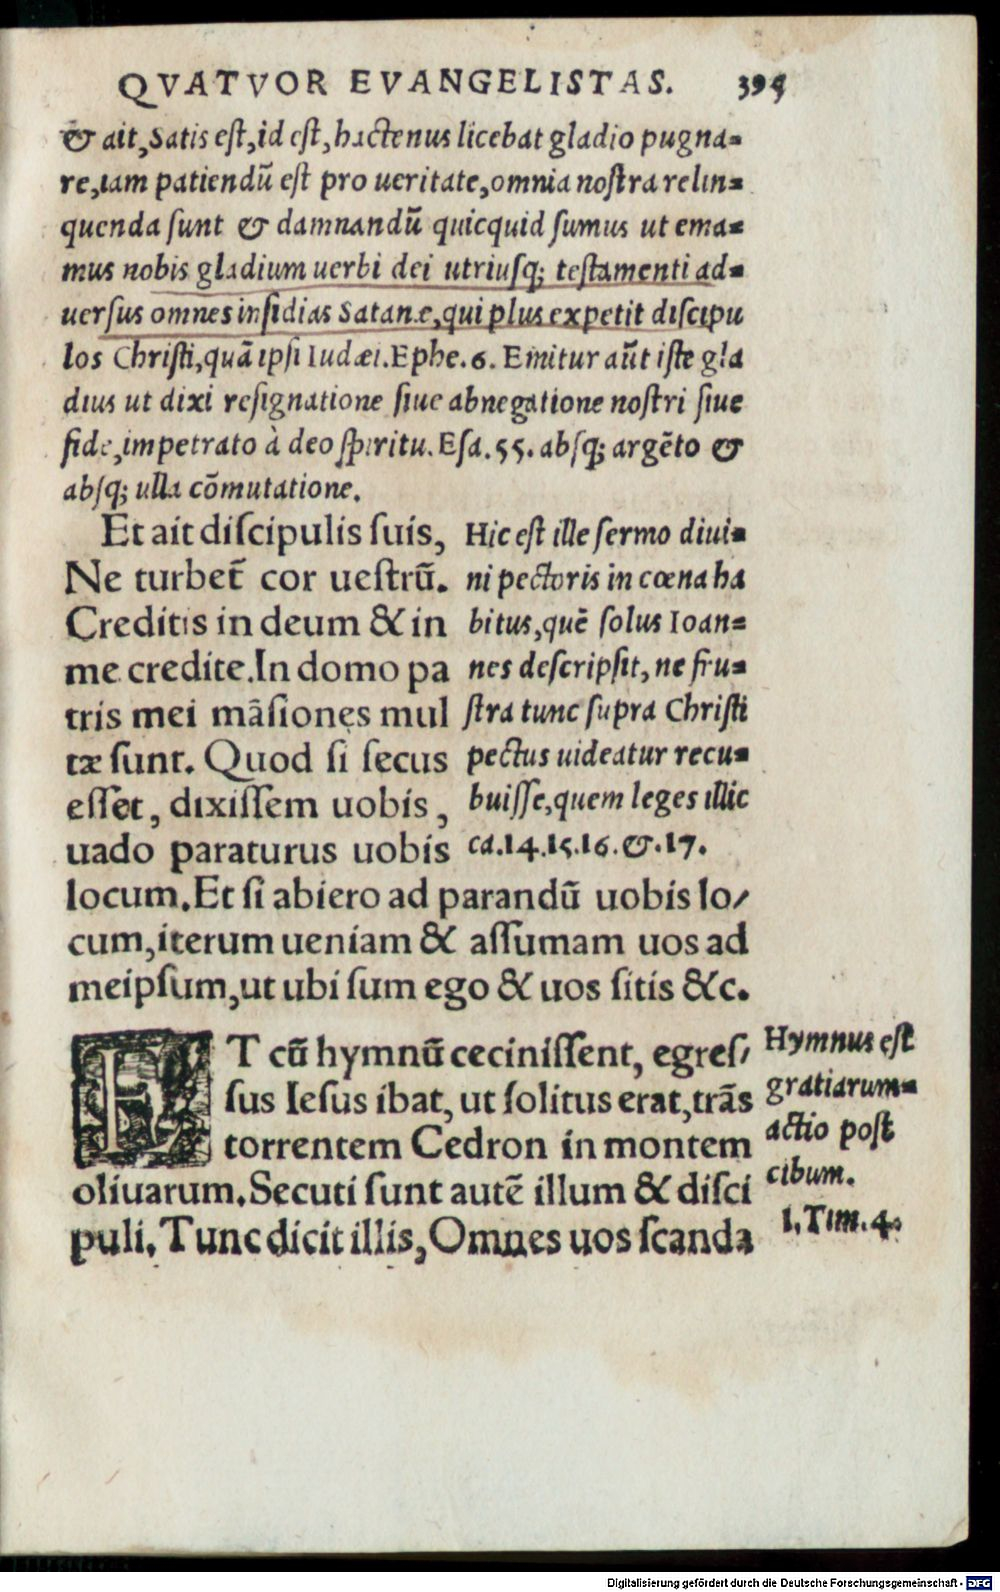 QVATVOR EVANGELISTAS. 395
& ait, Satis est, id est, hactenus licebat gladio pugna=
re, iam patiendū est pro ueritate, omnia nostra relin=
quenda sunt & damnandū quicquid sumus ut ema=
mus nobis gladium uerbi dei utriusq; testamenti ad=
uersus omnes insidias Satanæ, qui plus expetit discipu
los Christi, quā ipsi Iudæi. Ephe. 6. Emitur aūt iste gla
dius ut dixi resignatione siue abnegatione nostri siue
fide, impetrato à deo spiritu. Esa. 55. absq; argēto &
absq; ulla cōmutatione.
Et ait discipulis suis,
Ne turbet̄ cor uestrū.
Creditis in deum & in
me credite. In domo pa
tris mei māsiones mul
tæ sunt. Quod si secus
esset, dixissem uobis,
uado paraturus uobis
Hic est ille sermo diui=
ni pectoris in cœna ha
bitus, quē solus Ioan=
nes descripsit, ne fru=
stra tunc supra Christi
pectus uideatur recu=
buisse, quem leges illic
ca. 14. 15. 16. &. 17.
locum. Et si abiero ad parandū uobis lo/
cum, iterum ueniam & assumam uos ad
meipsum, ut ubi sum ego & uos sitis &c.
ET cū hymnū cecinissent, egres/
sus Iesus ibat, ut solitus erat, trās
torrentem Cedron in montem
oliuarum. Secuti sunt autē illum & disci
puli. Tunc dicit illis, Omnes uos scanda
Hymnus est
gratiarum=
actio post
cibum.
1. Tim. 4.
Digitalisierung gefördert durch die Deutsche Forschungsgemeinschaft - DFG